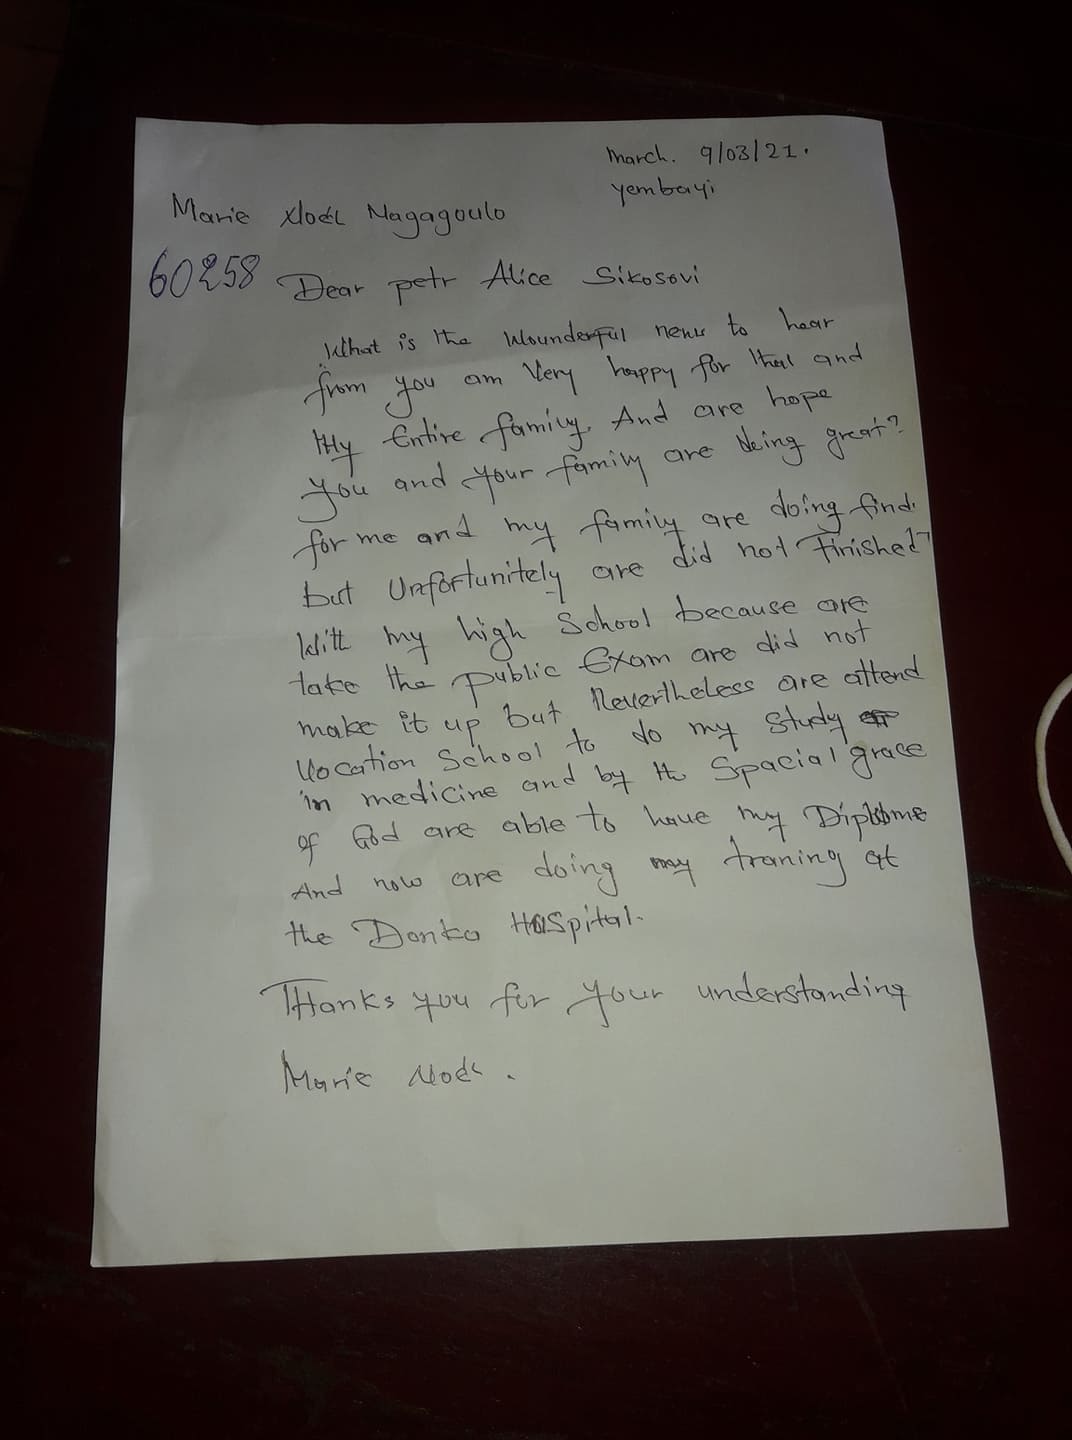 March. 9/03/21.
Yembayi
Marie Noël Nagagoulo
60258
Dear petr Alice Sikosovi
What is the Wounderful news to hear
from you am Very happy for that and
My Entire family. And are hope
you and your family are being great?
for me and my family are doing find.
but Unfortunitely are did not Finished
With my high School because are
take the public Exam are did not
make it up but Nevertheless are attend
Vocation School to do my study
in medicine and by the Spacial grace
of God are able to have my Diplôme
And now are doing my traning at
the Donka Hospital.
Thanks you for your understanding
Marie Noël.